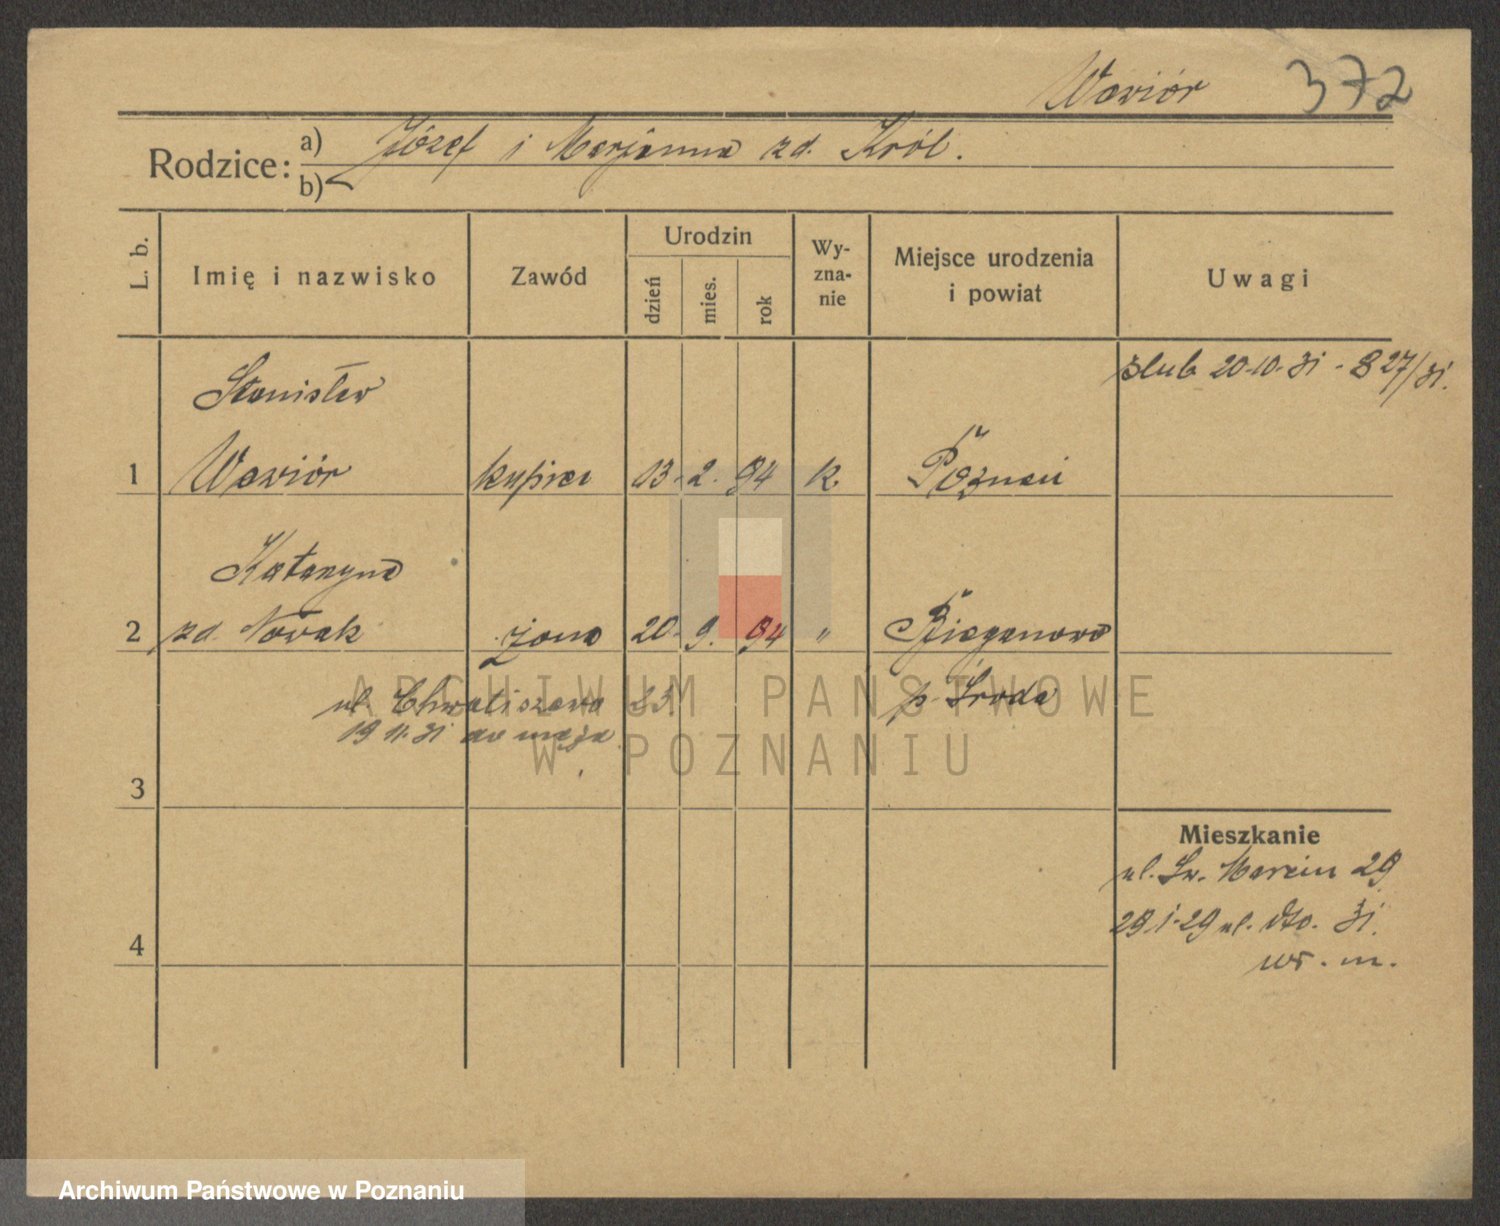 Wawiór 372
Rodzice: a) Józef i Marjanna zd. Król.
b)
L. b. Imię i nazwisko Zawód Urodzin dzień mies. rok Wy-zna-nie Miejsce urodzenia i powiat Uwagi
ślub 20.10.31 - 827/31.
Stanisław
1 Wawiór kupiec 13. 2. 94 k. Poznań
Katarzyna
2 zd. Nowak żona 20. 9. 94 " Bieganowo
ul. Chwaliszewo 23. p. Środa
19 11. 31 do męża
ARCHIWUM PAŃSTWOWE
W POZNANIU
3
Mieszkanie
ul. Św. Marcin 29
29.1.29 ul. dto. 31.
4
Archiwum Państwowe w Poznaniu